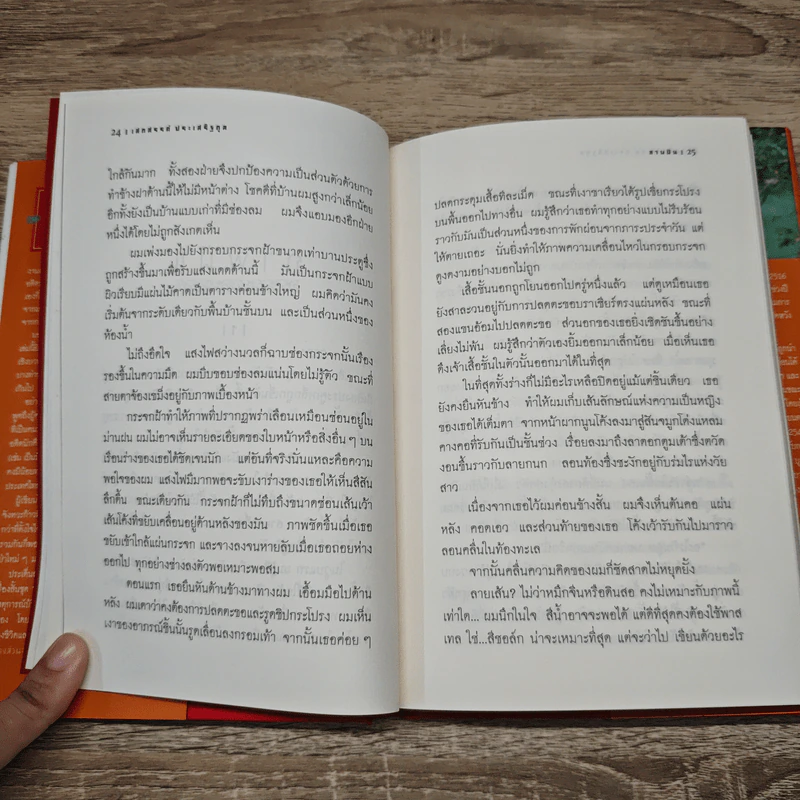 24
ใกล้กันมาก ทั้งสองฝ่ายจึงปกป้องความเป็นส่วนตัวด้วยการ
ทำข้างฝาด้านนี้ให้ไม่มีหน้าต่าง โชคดีที่บ้านผมสูงกว่าเล็กน้อย
อีกทั้งยังเป็นบ้านแบบเก่าที่มีช่องลม ผมจึงแอบมองอีกฝ่าย
หนึ่งได้โดยไม่ถูกสังเกตเห็น
ผมเพ่งมองไปยังกรอบกระจกฝ้าขนาดเท่าบานประตูซึ่ง
ถูกสร้างขึ้นมาเพื่อรับแสงแดดด้านนี้ มันเป็นกระจกฝ้าแบบ
ผิวเรียบมีแผ่นไม้คาดเป็นตารางค่อนข้างใหญ่ ผมคิดว่ามันคง
เริ่มต้นจากระดับเดียวกับพื้นบ้านชั้นบน และเป็นส่วนหนึ่งของ
ห้องน้ำ
ไม่ถึงอึดใจ แสงไฟสว่างนวลก็ฉาบช่องกระจกนั้นเรือง
รองขึ้นในความมืด ผมบีบขอบช่องลมแน่นโดยไม่รู้ตัว ขณะที่
สายตาจ้องเขม็งอยู่กับภาพเบื้องหน้า
กระจกฝ้าทำให้ภาพที่ปรากฏพร่าเลือนเหมือนซ่อนอยู่ใน
ม่านฝน ผมไม่อาจเห็นรายละเอียดของใบหน้าหรือสิ่งอื่น ๆ บน
เรือนร่างของเธอได้ชัดเจนนัก แต่อันที่จริงนั่นแหละคือความ
พอใจของผม แสงไฟมีมากพอจะขับเงาร่างของเธอให้เห็นสีสัน
ลึกตื้น ขณะเดียวกัน กระจกฝ้าก็ไม่ทึบถึงขนาดซ่อนเส้นเว้า
เส้นโค้งที่ขยับเคลื่อนอยู่ด้านหลังของมัน ภาพชัดขึ้นเมื่อเธอ
ขยับเข้าใกล้แผ่นกระจก และจางลงจนหายลับเมื่อเธอถอยห่าง
ออกไป ทุกอย่างช่างลงตัวพอเหมาะพอสม
ตอนแรก เธอยืนหันด้านข้างมาทางผม เอื้อมมือไปด้าน
หลัง ผมเดาว่าคงต้องการปลดตะขอและรูดซิปกระโปรง ผมเห็น
เงาของอาภรณ์ชิ้นนั้นรูดเลื่อนลงกรอมเท้า จากนั้นเธอค่อย ๆ
25
ปลดกระดุมเสื้อทีละเม็ด ขณะที่เงาขาเรียวได้รูปเขี่ยกระโปรง
บนพื้นออกไปทางอื่น ผมรู้สึกว่าเธอทำทุกอย่างแบบไม่รีบร้อน
ราวกับมันเป็นส่วนหนึ่งของการพักผ่อนจากภาระประจำวัน แต่
ให้ตายเถอะ นั่นยิ่งทำให้ภาพความเคลื่อนไหวในกรอบกระจก
ดูงดงามอย่างบอกไม่ถูก
เสื้อชั้นนอกถูกโยนออกไปครู่หนึ่งแล้ว แต่ดูเหมือนเธอ
ยังสาละวนอยู่กับการปลดตะขอบราเซียร์ตรงแผ่นหลัง ขณะที่
สองแขนอ้อมไปปลดตะขอ ส่วนอกของเธอยิ่งเชิดชันขึ้นอย่าง
เลี่ยงไม่พ้น ผมรู้สึกว่าตัวเองยิ้มออกมาเล็กน้อย เมื่อเห็นเธอ
ดึงเจ้าเสื้อชั้นในตัวนั้นออกมาได้ในที่สุด
ในที่สุดทั้งร่างก็ไม่มีอะไรเหลือปิดอยู่แม้แต่ชิ้นเดียว เธอ
ยังคงยืนหันข้าง ทำให้ผมเก็บเส้นลักษณ์แห่งความเป็นหญิง
ของเธอได้เต็มตา จากหน้าผากนูนโค้งลงมาสู่สันจมูกโด่งแหลม
คางคอที่รับกันเป็นชั้นช่วง เรื่อยลงมาถึงลาดอกตูมเต้าซึ่งตวัด
งอนขึ้นราวกับลายกนก ลอนท้องซึ่งชะงักอยู่กับร่มไรแห่งวัย
สาว
เนื่องจากเธอไว้ผมค่อนข้างสั้น ผมจึงเห็นต้นคอ แผ่น
หลัง คอดเอว และส่วนท้ายของเธอ โค้งเว้ารับกันไปมาราว
ลอนคลื่นในท้องทะเล
จากนั้นคลื่นความคิดของผมก็ซัดสาดไม่หยุดยั้ง
ลายเส้น? ไม่ว่าหมึกจีนหรือดินสอ คงไม่เหมาะกับภาพนี้
เท่าใด... ผมนึกในใจ สีน้ำอาจจะพอได้ แต่ดีที่สุดคงต้องใช้พาส
เทล ใช่...สีชอล์ก น่าจะเหมาะที่สุด แต่จะว่าไป เขียนด้วยอะไร